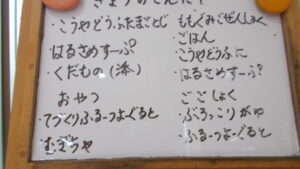 きょうのこんだて
・こうやどうふたまごとじ
はるさめすーぷ
くだもの(添)
おやつ
・てづくりふるーつよーぐると
むぎちゃ
ももぐみごぜんしょく
・ごはん
・こうやどうふに
・はるさめすーぷ
ごごしょく
・ぶろっこりがゆ
・ふるーつよーぐると